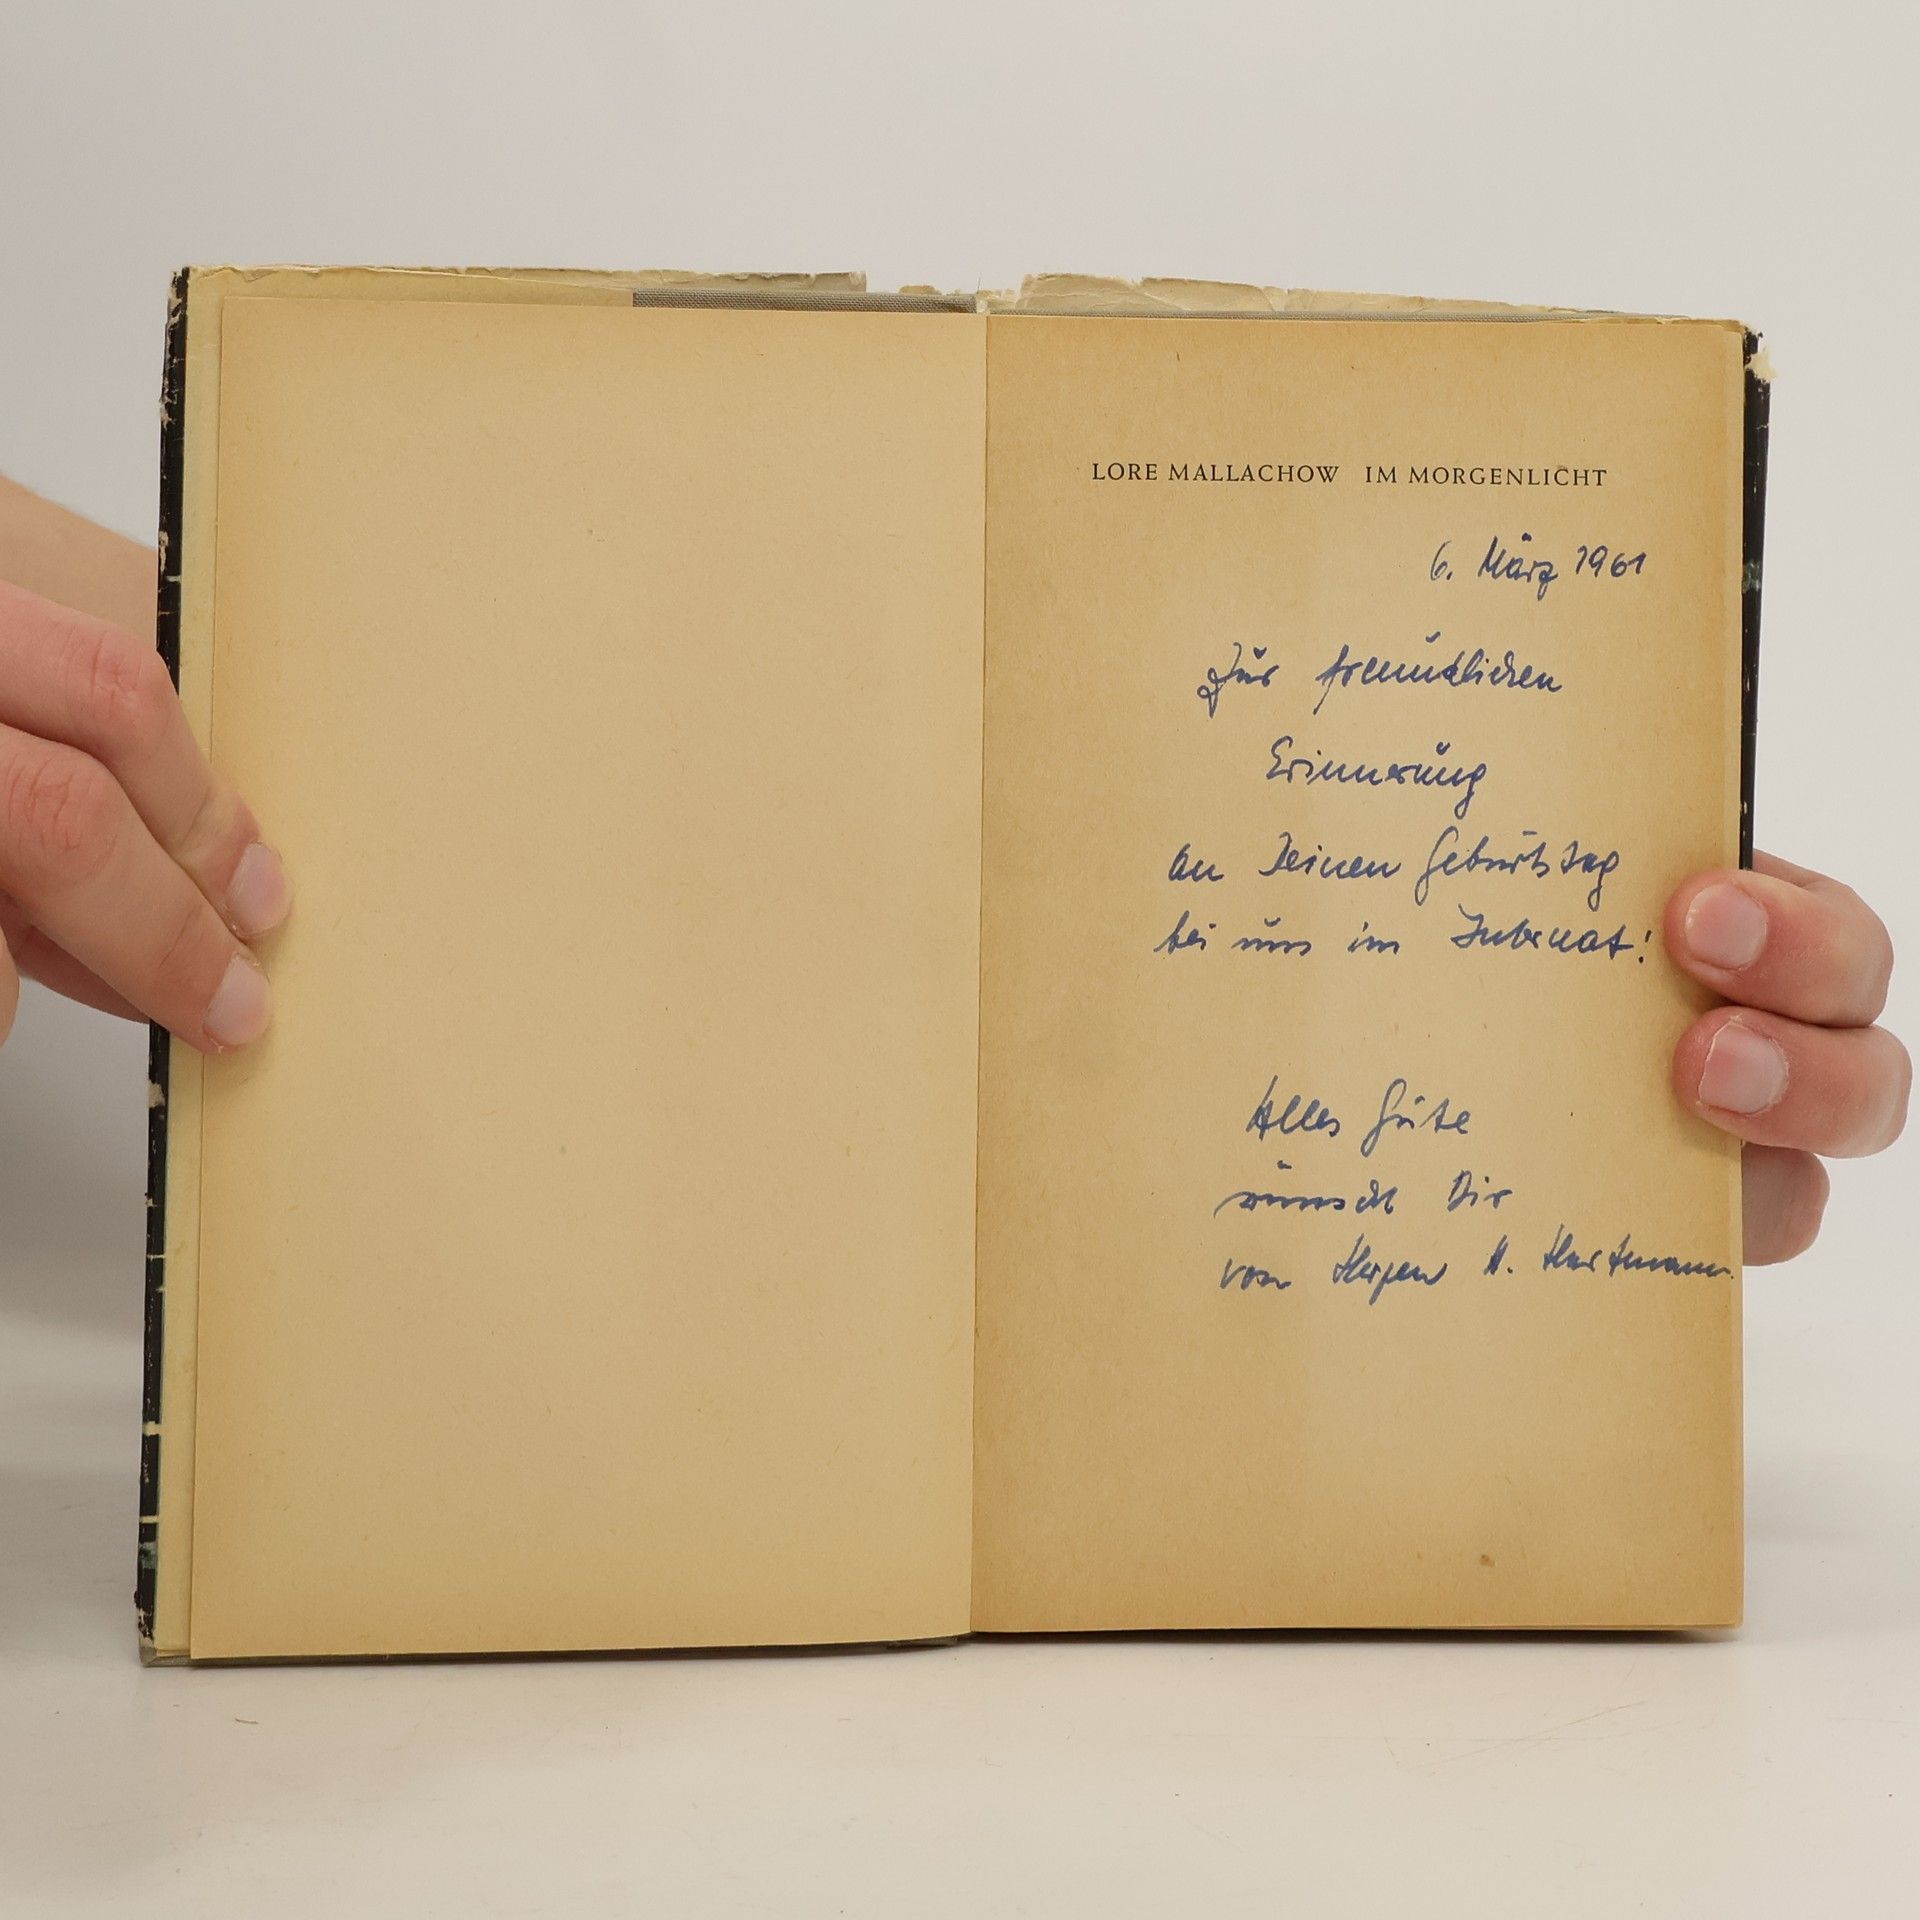 LORE MALLACHOW IM MORGENLICHT
6. März 1961
Zur freundlichen
Erinnerung
an Deinen Geburtstag
bei uns im Internat!
Alles Gute
wünscht Dir
von Herzen H. Hartmann.